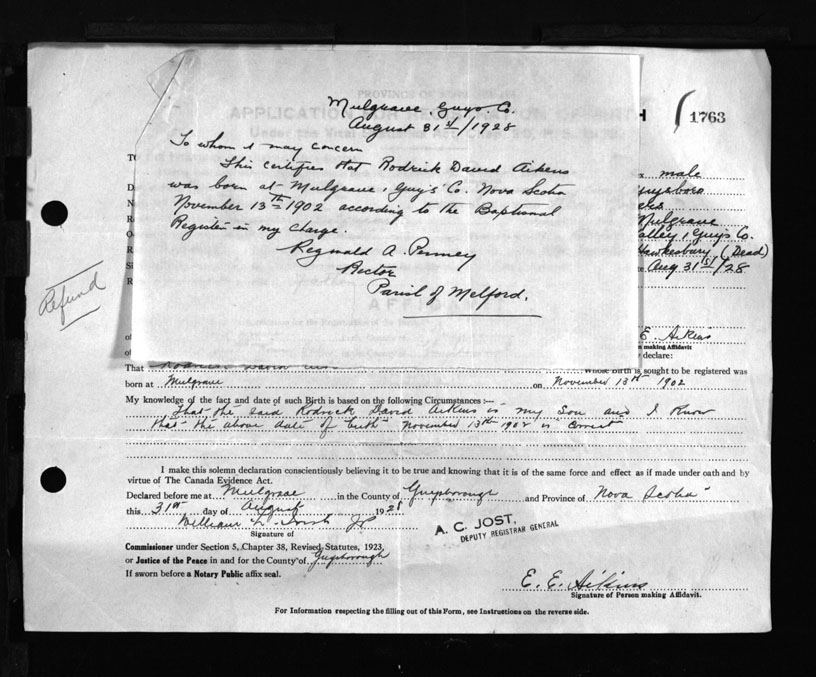 1763
Mulgrave, Guys. Co.
August 31st/1928
To whom it may concern
This certifies that Rodrick David Aikens
was born at Mulgrave, Guy's Co. Nova Scotia
November 13th 1902 according to the Baptismal
Register in my charge.
Reginald A. Penney
Rector
Parish of Melford.
male
Guysboro
Mulgrave
Guys Co.
Hawkesbury (Dead)
Aug 31st/28
Refund
E. Aikins
making Affidavit
declare:
That Rodrick David whose birth is sought to be registered was
born at Mulgrave on November 13th 1902
My knowledge of the fact and date of such Birth is based on the following Circumstances:—
That the said Rodrick David Aikens is my Son and I know
that the above date of birth November 13th 1902 is correct
I make this solemn declaration conscientiously believing it to be true and knowing that it is of the same force and effect as if made under oath and by
virtue of The Canada Evidence Act.
Declared before me at Mulgrave in the County of Guysborough and Province of Nova Scotia
this 31st day of August 1928
William JP
Signature of
A. C. JOST,
DEPUTY REGISTRAR GENERAL
Commissioner under Section 5, Chapter 38, Revised Statutes, 1923
or Justice of the Peace in and for the County of Guysborough
If sworn before a Notary Public affix seal.
E. E. Aikins
Signature of Person making Affidavit.
For Information respecting the filling out of this Form, see Instructions on the reverse side.